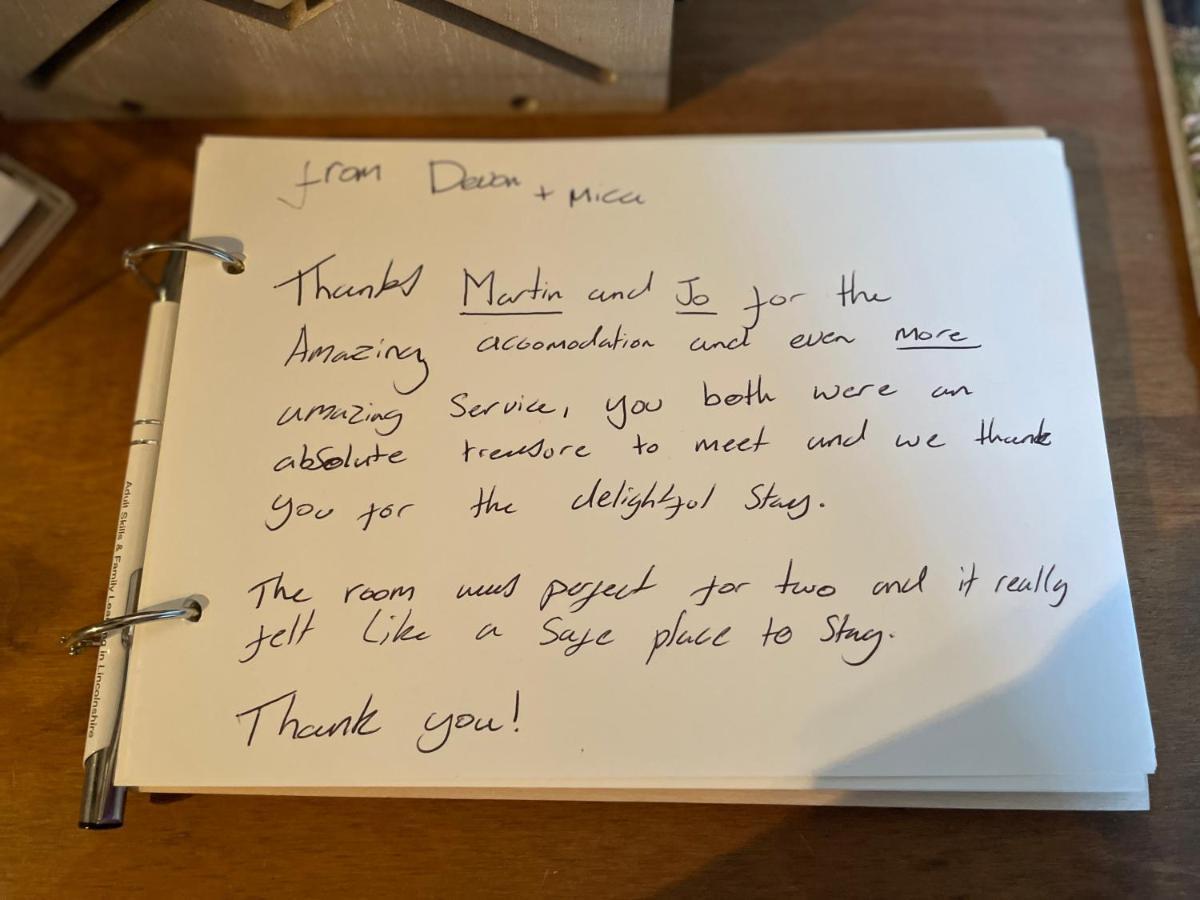 from Devon + Mica
Thanks Martin and Jo for the
Amazing accomodation and even more
amazing Service, you both were an
absolute treasure to meet and we thank
you for the delightful Stay.
The room was perfect for two and it really
felt like a Safe place to Stay.
Thank you!
Adult Skills & Family Learning in Lincolnshire